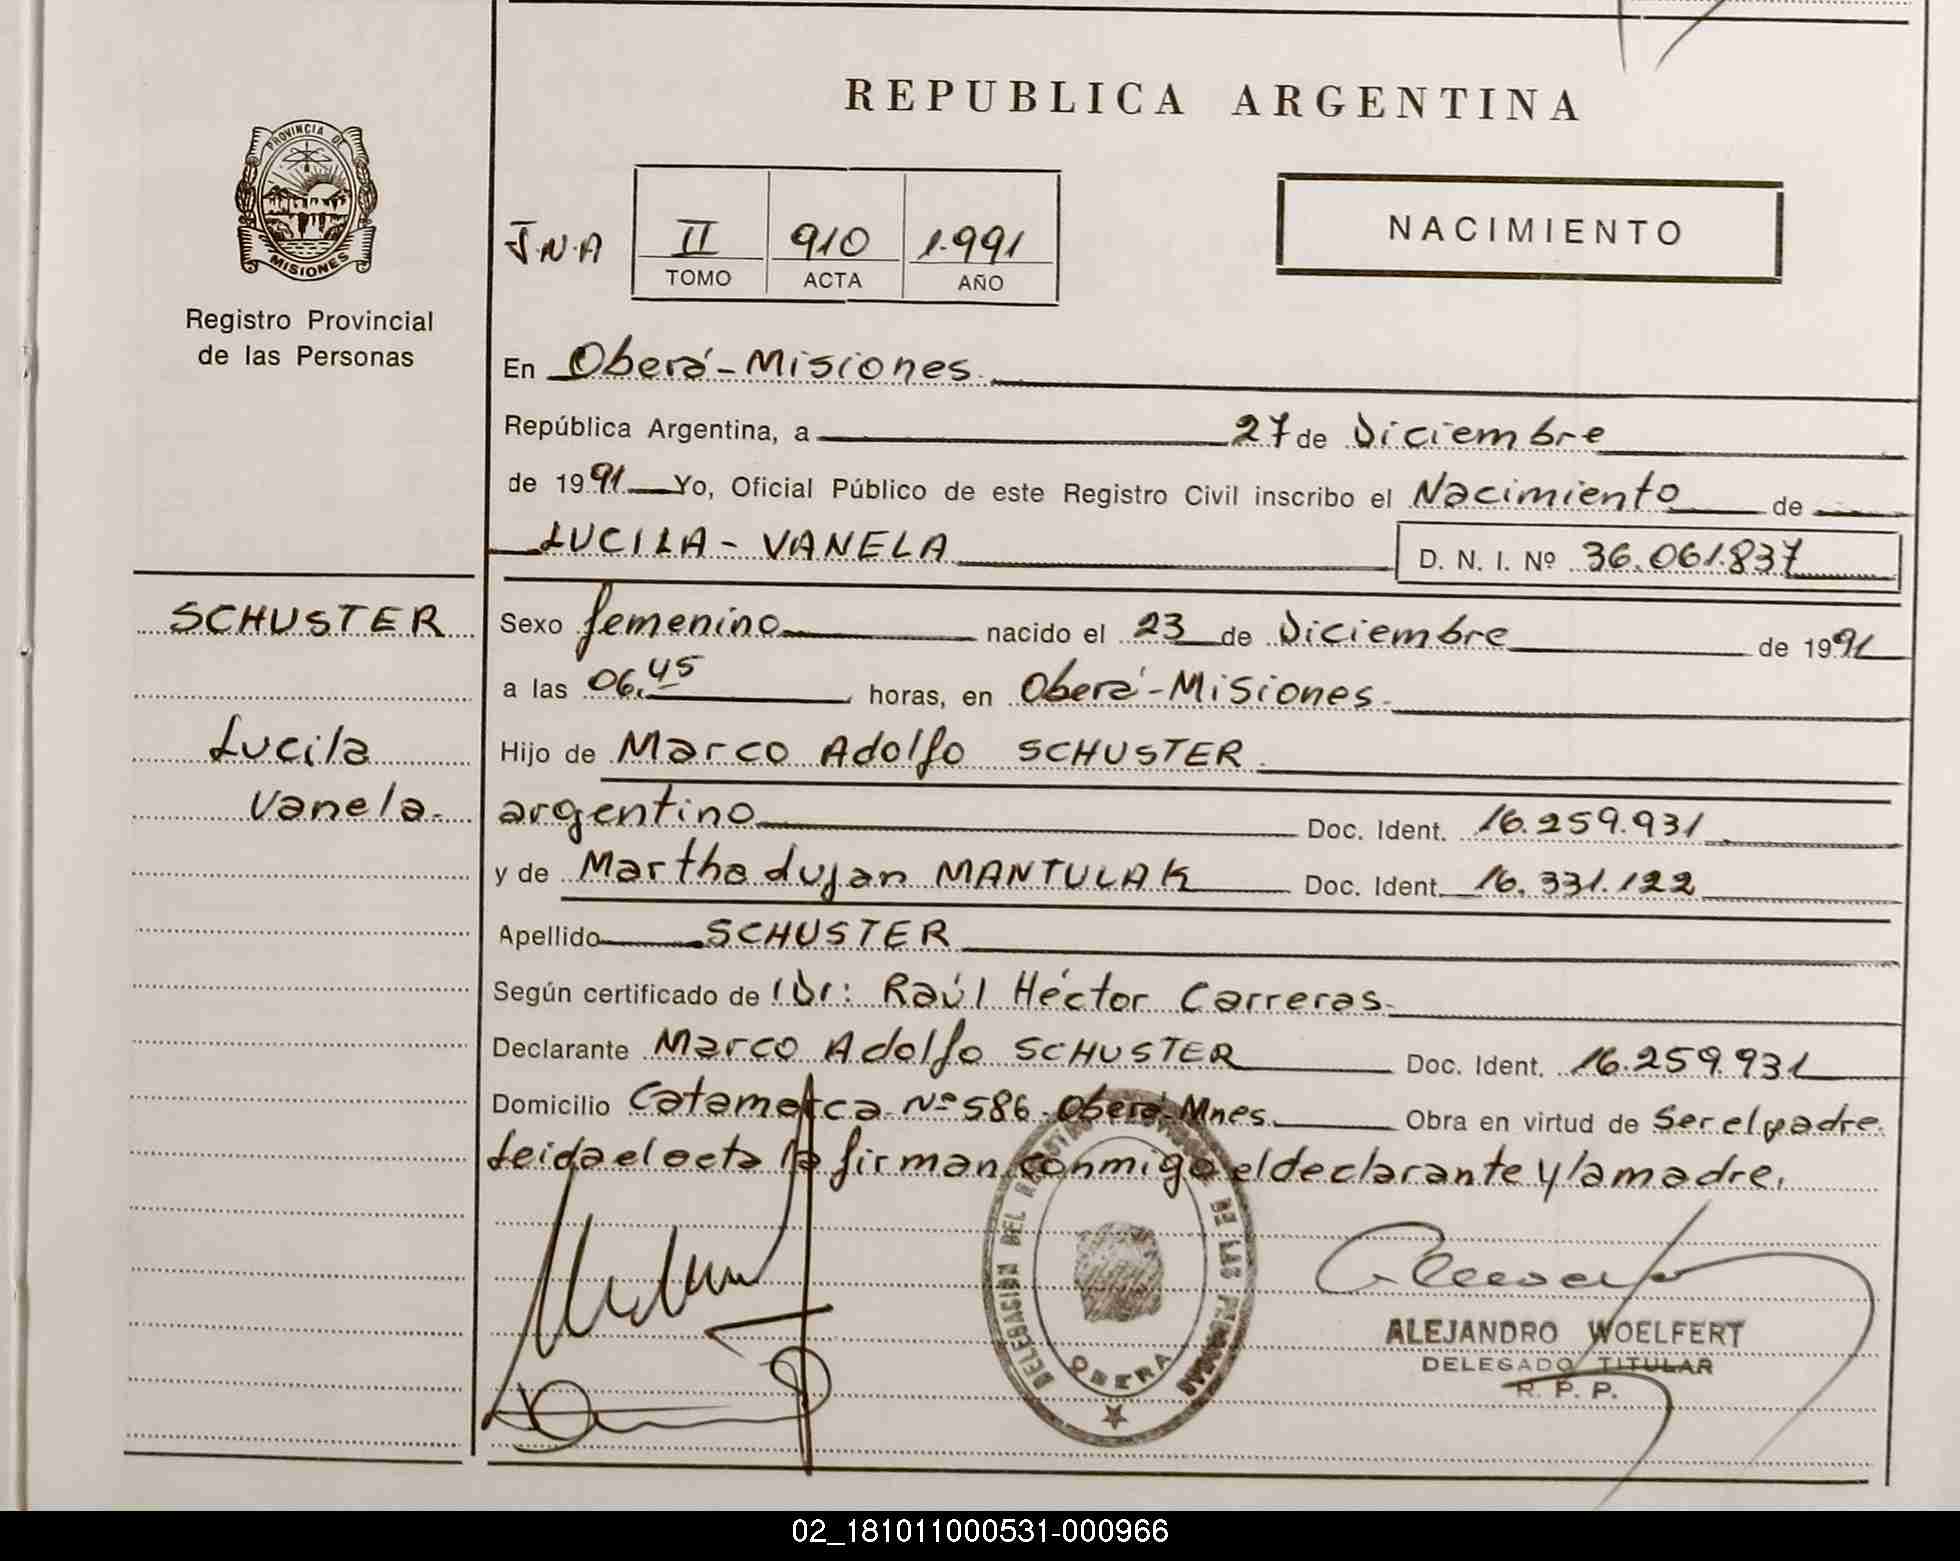 REPUBLICA ARGENTINA
PROVINCIA DE
MISIONES
Registro Provincial
de las Personas
J.N.A
II 910 1.991
TOMO ACTA AÑO
NACIMIENTO
En Oberá-Misiones.
República Argentina, a 27 de Diciembre
de 1991 Yo, Oficial Público de este Registro Civil inscribo el Nacimiento de
LUCILA - VANELA D. N. I. Nº 36.061.837
SCHUSTER
Lucila
Vanela.
Sexo femenino nacido el 23 de Diciembre de 1991
a las 06.45 horas, en Oberá-Misiones.
Hijo de Marco Adolfo SCHUSTER.
argentino Doc. Ident. 16.259.931
y de Martha Lujan MANTULAK Doc. Ident. 16.331.122
Apellido SCHUSTER
Según certificado de Dr: Raúl Héctor Carreras.
Declarante Marco Adolfo SCHUSTER Doc. Ident. 16.259.931
Domicilio Catamarca Nº 586. Oberá-Mnes. Obra en virtud de Ser el padre.
Leida el acta la firman conmigo el declarante y la madre.
DELEGACIÓN DEL REGISTRO PROVINCIAL DE LAS PERSONAS
OBERA
ALEJANDRO WOELFERT
DELEGADO TITULAR
R. P. P.
02_181011000531-000966